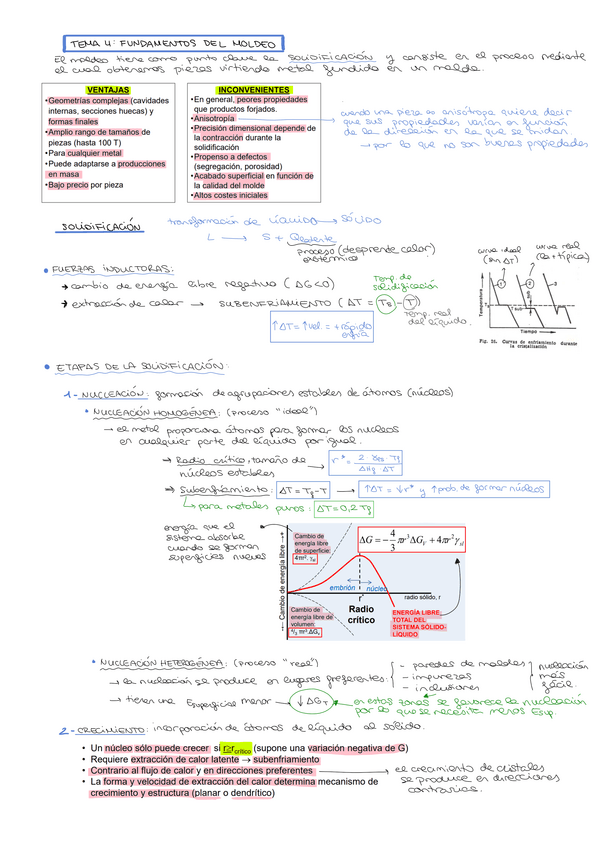 TEMA 4: FUNDAMENTOS DEL MOLDEO
El moldeo tiene como punto clave la SOLIDIFICACIÓN y consiste en el proceso mediante
el cual obtenemos piezas virtiendo metal fundido en un molde.
VENTAJAS
•Geometrías complejas (cavidades
internas, secciones huecas) y
formas finales
•Amplio rango de tamaños de
piezas (hasta 100 T)
•Para cualquier metal
•Puede adaptarse a producciones
en masa
•Bajo precio por pieza
INCONVENIENTES
•En general, peores propiedades
que productos forjados.
•Anisotropía
•Precisión dimensional depende de
la contracción durante la
solidificación
•Propenso a defectos
(segregación, porosidad)
•Acabado superficial en función de
la calidad del molde
•Altos costes iniciales
cuando una pieza es anisótropa quiere decir
que sus propiedades varían en función
de la dirección en la que se midan
→ por lo que no son buenas propiedades
SOLIDIFICACIÓN
transformación de LÍQUIDO → SÓLIDO
L → S + Qlatente
proceso (desprende calor)
exotérmico
• FUERZAS INDUCTORAS:
→ cambio de energía libre negativo (ΔG<0)
→ extracción de calor → SUBENFRIAMIENTO (ΔT = Ts - T)
Temp. de
solidificación
Temp. real
del líquido.
↑ΔT = ↑vel = + rápido
curva ideal
(sin ΔT)
curva real
(la + típica)
Temperatura
1
2
3
Tiempo
Fig. 25. Curvas de enfriamiento durante
la cristalización
• ETAPAS DE LA SOLIDIFICACIÓN:
1- NUCLEACIÓN: formación de agrupaciones estables de átomos (núcleos)
* NUCLEACIÓN HOMOGÉNEA: (proceso "ideal")
→ el metal proporciona átomos para formar los núcleos
en cualquier parte del líquido por igual.
→ Radio crítico, tamaño de
núcleos estables
r* = 2 γes Tf / ΔHf ΔT
→ Subenfriamiento: ΔT = Tf - T → ↑ΔT = ↓r* y ↑prob. de formar núcleos
para metales puros: ΔT = 0,2 Tf
energía que el
sistema absorbe
cuando se forman
superficies nuevas
Cambio de energía libre
Cambio de
energía libre
de superficie:
4πr². γsl
ΔG = − 4/3 πr³ΔGV + 4πr²γsl
embrión
núcleo
r*
radio sólido, r
Radio
crítico
Cambio de
energía libre de
volumen:
4/3 πr³.ΔGv
ENERGÍA LIBRE
TOTAL DEL
SISTEMA SÓLIDO-
LÍQUIDO
* NUCLEACIÓN HETEROGÉNEA: (proceso "real")
→ la nucleación se produce en lugares preferentes:
- paredes de moldes
- impurezas
- inclusiones
nucleación
más
fácil.
→ tienen una Esuperficial menor → ↓ΔGT
en estas zonas se favorece la nucleación
por lo que se necesita menos Esup.
2- CRECIMIENTO: incorporación de átomos de líquido al sólido.
• Un núcleo sólo puede crecer si r≥rcrítico (supone una variación negativa de G)
• Requiere extracción de calor latente → subenfriamiento
• Contrario al flujo de calor y en direcciones preferentes
• La forma y velocidad de extracción del calor determina mecanismo de
crecimiento y estructura (planar o dendrítico)
el crecimiento de cristales
se produce en direcciones
contrarias.